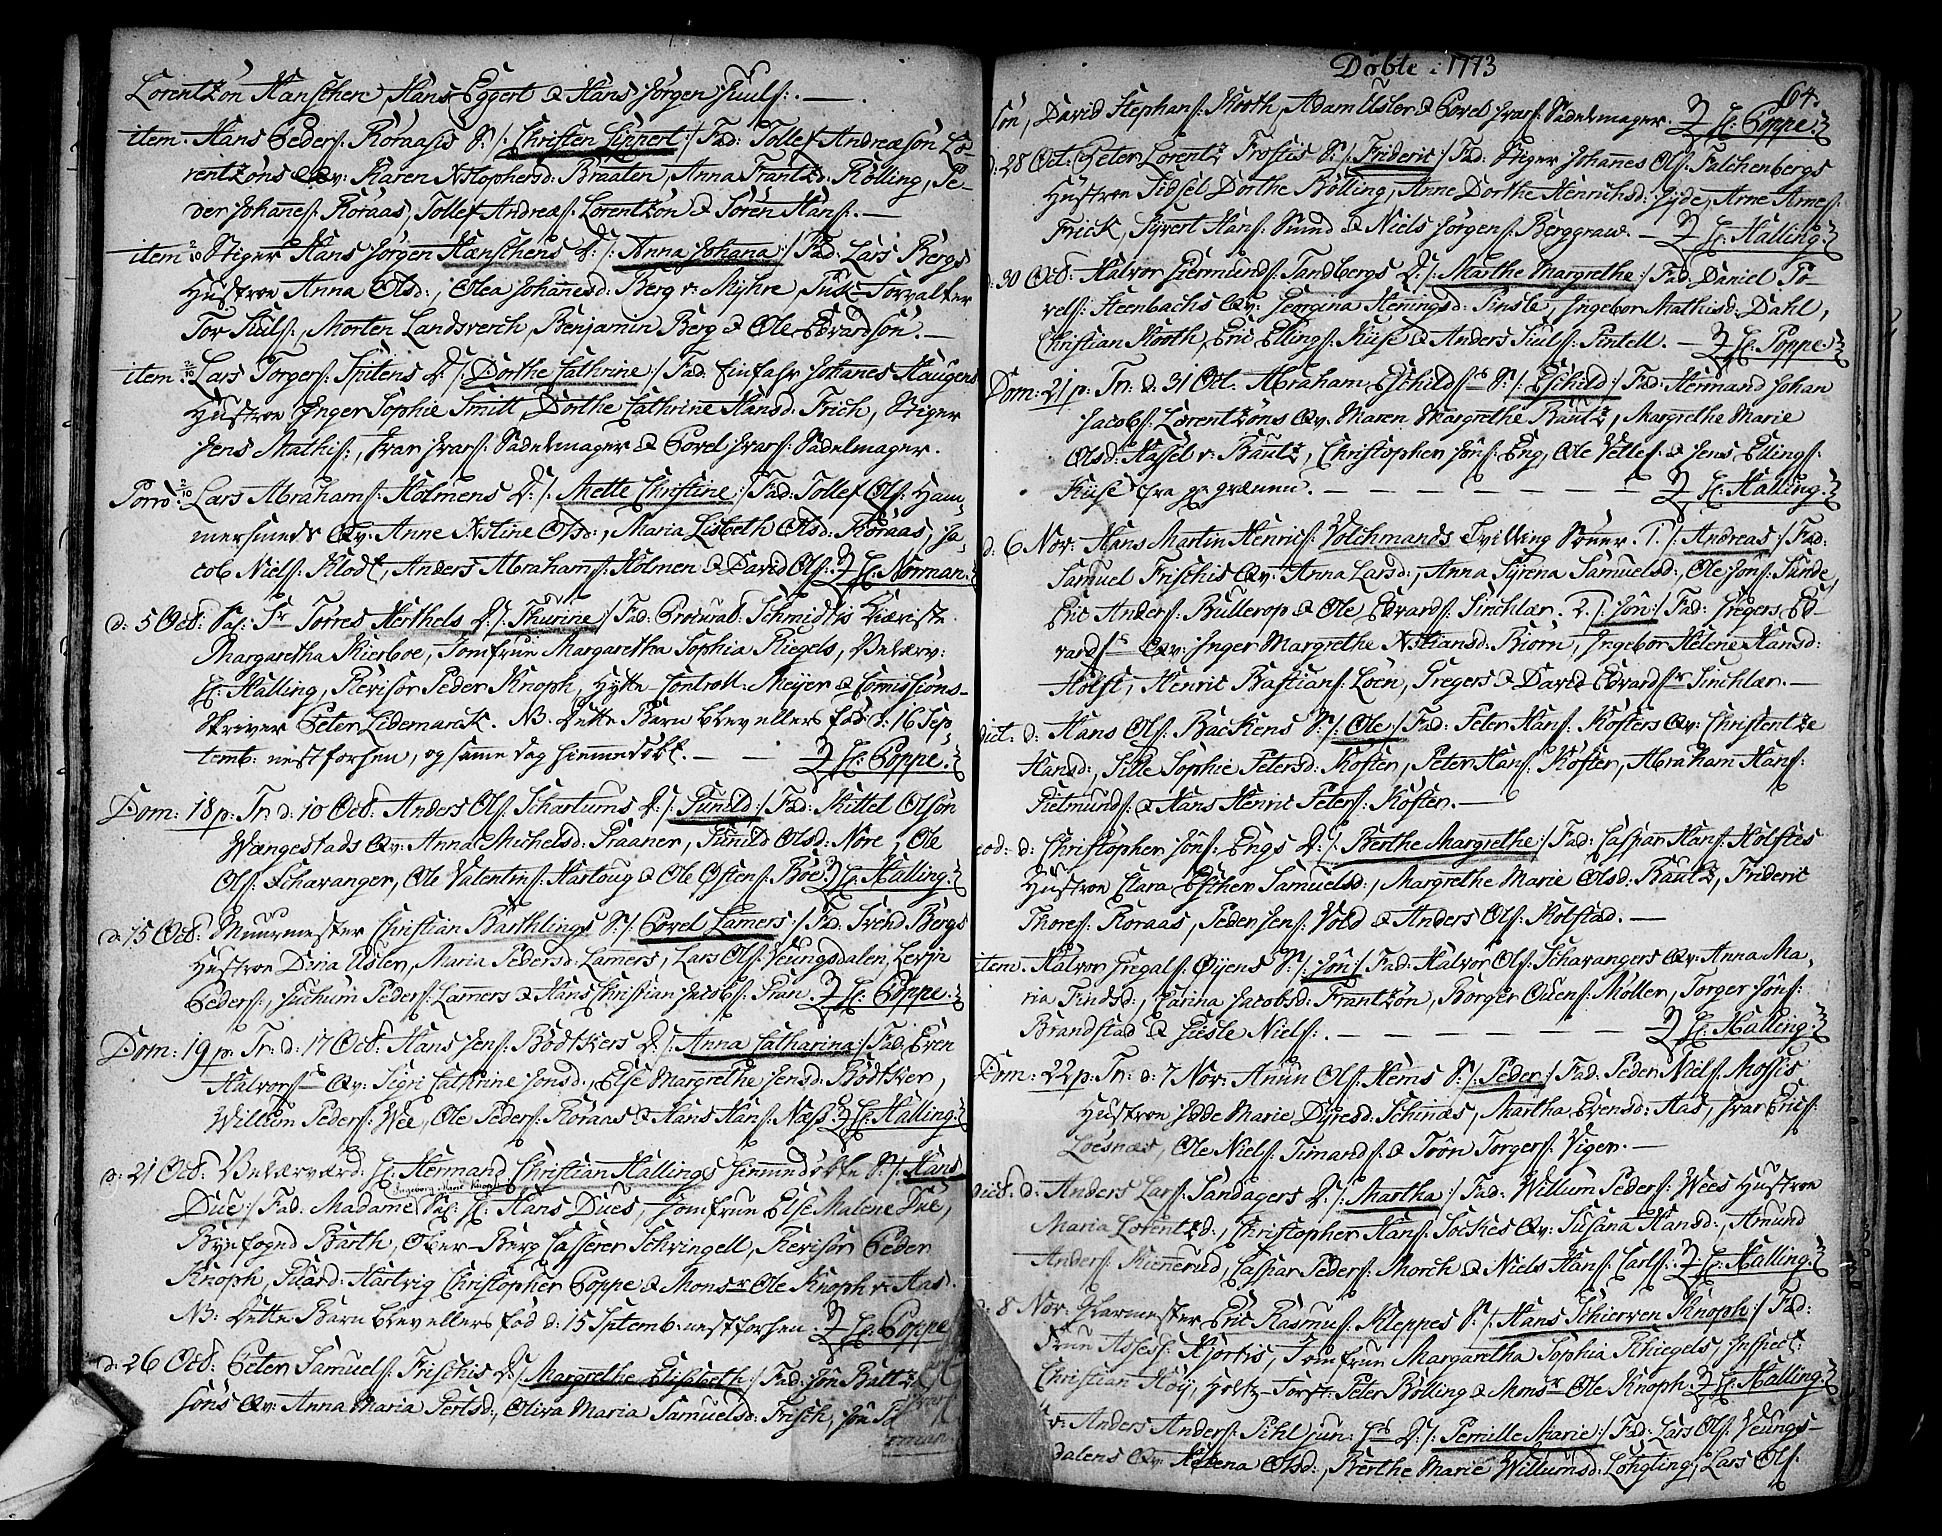 Lorentzon Hanschen, Hans Eggert & Hans Jørgen Juuls:.
item. Hans Peders: Roraases S: /: Christen Lippert :/ Fad: Tollef Andreæsøn Lo-
rentzøns Qv: Karen Xstophersd: Braaten, Anna Frantzd: Rølling, Pe-
der Johanes: Roraas, Tollef Andreæs: Lorentzøn & Søren Hans:.
item 2/10 Stiger Hans Jørgen Hanschens D: /: Anna Johana :/ Fad: Lars Bergs
Hustrue Anna Olsd:, Olea Johanesd: Berg v: Myhre, Forvalter
Tor Juuls:, Morten Landsverch, Benjamin Berg & Ole Edvardsøn.
item: 2/10 Lars Torgers: Spitens D: /: Dorthe Cathrine :/ Fad: Johanes Haugens
Hustrue Inger Sophie Smitt, Dorthe Cathrine Hansd: Frich, Stiger
Jens Mathis:, Ivar Ivars: Sadelmager & Povel Ivars: Sadelmager.
Porro 2/10 Lars Abrahams: Holmens D: /: Mette Christine :/ Fad: Tollef Ols: Ham-
mersmeds Qv: Anne Xstine Olsd:, Maria Lisbeth Olsd: Roraas, Ja-
cob Niels: Klodt, Anders Abrahams: Holmen & David Ols: H: Norman.
d: 5 Oct: Sal: Sr Torres Herthels D: /: Thurine :/ Fad: Procurat: Schmidts Kiæriste
Margaretha Kierboe, Jomfrue Margaretha Sophia Riegels, Velærv:
H: Halling, Revisor Peder Knoph, Hytte-Controll: Meijer & Comissions-
Skriver Peter Ledemarck. NB: Dette Barn blev ellers fød d: 16 Sep
temb: nestforhen, og samme dag hiemmedøbt. H: Poppe.
Dom: 18 p: Tr: d: 10 Oct: Anders Ols: Scharums D: /: Gunild :/ Fad: Kittel Olsøn
Wangestads Qv: Anna Michelsd: Traaner, Gunild Olsd: Nore, Ole
Ols: Schavanger, Ole Valentins: Hartoug & Ole Østens: Böe. H: Halling.
d: 15 Oct: Muurmester Christian Barthlings S: /: Povel Lamers :/ Fad: Svend Bergs
Hustrue Dina Usler, Maria Pedersd: Lamers, Lars Ols: Veungsdalen, Levin
Peders:, Jochum Peders: Lamers & Hans Christian Jacobs: Pran. H: Poppe.
Dom: 19 p: Tr: d: 17 Oct: Hans Jens: Bödtkers D: /: Anna Catharina :/ Fad: Even
Halvors: Qv: Sigri Cathrine Jonsd:, Else Margrethe Jensd: Bödtker,
Willum Peders: Wee, Ole Peders: Roraas & Hans Hans: Næss. H: Halling.
d: 21 Oct: Velærværd: H: Hermand Christian Hallings hiemmedøbte S: /: Hans
Due :/ Fad: Madame Ingeborg Marie Knoph Sal: H: Hans Dues, Jomfrue Else Malene Due,
Byefogd Barth, Ober-Berg Casserer Schvingell, Revisor Peder
Knoph, Stud: Hartvig Christopher Poppe & Monsr Ole Knoph v: Ans.
NB: Dette Barn blev ellers fød d: 15 Septemb: nestforhen. H: Poppe
d: 26 Oct: Peter Samuels: Frischis D: /: Margrethe Elisabeth :/ Fad: Jon Baltz
søns Qv: Anna Maria Pertsd:, Oliva Maria Samuelsd: Frisch, Jon
Döbte i 1773
64.
søn, David Stephans: Kooth, Adam Usler & Povel Ivars: Sadelmager. H: Poppe.
d: 28 Oct: Peter Lorentz Frostis S: /: Frideric :/ Fad: Stiger Johanes Ols: Falchenbergs
Hustrue Sidsel Dorthe Bölling, Anne Dorthe Henrichsd: Jyde, Arne Arnes:
Frick, Syvert Hans: Sund & Niels Jørgens: Berggraw. H: Halling.
d: 30 Oct: Halvor Giermunds: Tandbergs D: /: Marthe Margrethe :/ Fad: Daniel Po-
vels: Steenbachs Qv: Georgina Heningsd: Tinsle, Ingebor Mathisd: Dahl,
Christian Kooth, Eric Ellings: Kiise & Anders Juuls: Pintell. H: Poppe.
Dom: 21 p: Tr: d: 31 Oct: Abraham Eschilds:s S: /: Eschild :/ Fad: Hermand Johan
Jacobs: Lorentzøns Qv: Maren Margrethe Bautz, Margrethe Marie
Olsd: Hassel v: Bautz, Christopher Jøns: Eng, Ole Vetles: & Jens Ellings:
Kiise fra gr: H: Halling.
d: 6 Nov: Hans Martin Henrics: Volchmands Tvilling Sønner. 1. /: Andreas :/ Fad:
Samuel Frischis Qv: Anna Larsd:, Anna Syrena Samuelsd:, Ole Jøns: Sunde,
Eric Anders: Bullerop & Ole Edvards: Sinchlar. 2. /: Jøn :/ Fad: Gregers Ed-
vards: Qv: Inger Margrethe Xstiansd: Biørn, Ingebor Helene Hansd:
Holst, Henric Bastians: Löen, Gregers & David Edvards:r Sinchlar.
dict. d: Hans Ols: Backens S: /: Ole :/ Fad: Peter Hans: Kösters Qv: Christentze
Hansd:, Sille Sophie Petersd: Köster, Peter Hans: Köster, Abraham Hans:
Pietmunds: & Hans Henric Peters: Köster.
eod: d: Christopher Jøns: Engs D: /: Berthe Margrethe :/ Fad: Caspar Hans: Holstes
Hustrue Clara Esther Samuelsd:, Margrethe Marie Olsd: Bautz, Frideric
Thores: Roraas, Peder Jens: Vold & Anders Ols: Kolstad.
item. Halvor Gregars: Öijens S: /: Jøn :/ Fad: Halvor Ols: Schavangers Qv: Anna Ma-
ria Findsd:, Carina Jacobsd: Frantzøn, Börger Ouens: Möller, Torger Jøns:
Brandstad & Giesle Niels:. H: Halling.
Dom: 22 p: Tr: d: 7 Nov: Anun Ols: Hems S: /: Peder :/ Fad: Peder Niels: Mossis
Hustrue Edde Marie Dyresd: Schinæs, Martha Evensd: Aas, Ivar Erics:
Loesnæs, Ole Niels: Timands: & Törn Torgers: Viger.
dict. d: Anders Lars: Sandagers D: /: Martha :/ Fad: Willum Peders: Wees Hustrue
Maria Lorentzd:, Christopher Hans: Sockes Qv: Susana Hansd:, Amund
Anders: Kienerud, Caspar Peders: Morch & Niels Hans: Carls:. H: Halling.
d: 8 Nov: Glarmester Eric Rasmus: Kleppes S: /: Hans Schierven Knoph :/ Fad:
Frue Assess: Hjortis, Jomfrue Margaretha Sophia Rhiegels, Inspect:
Christian Höij, Holtz-Forst: Peter Bölling & Monsr Ole Knoph. H: Halling.
v: Anders Anders: Pihl jun: Hs D: /: Pernille Marie :/ Fad: Lars Ols: Veungs-
dalens Qv: Helena Olsd:, Berthe Marie Willumsd: Löngting, Lars Ols: